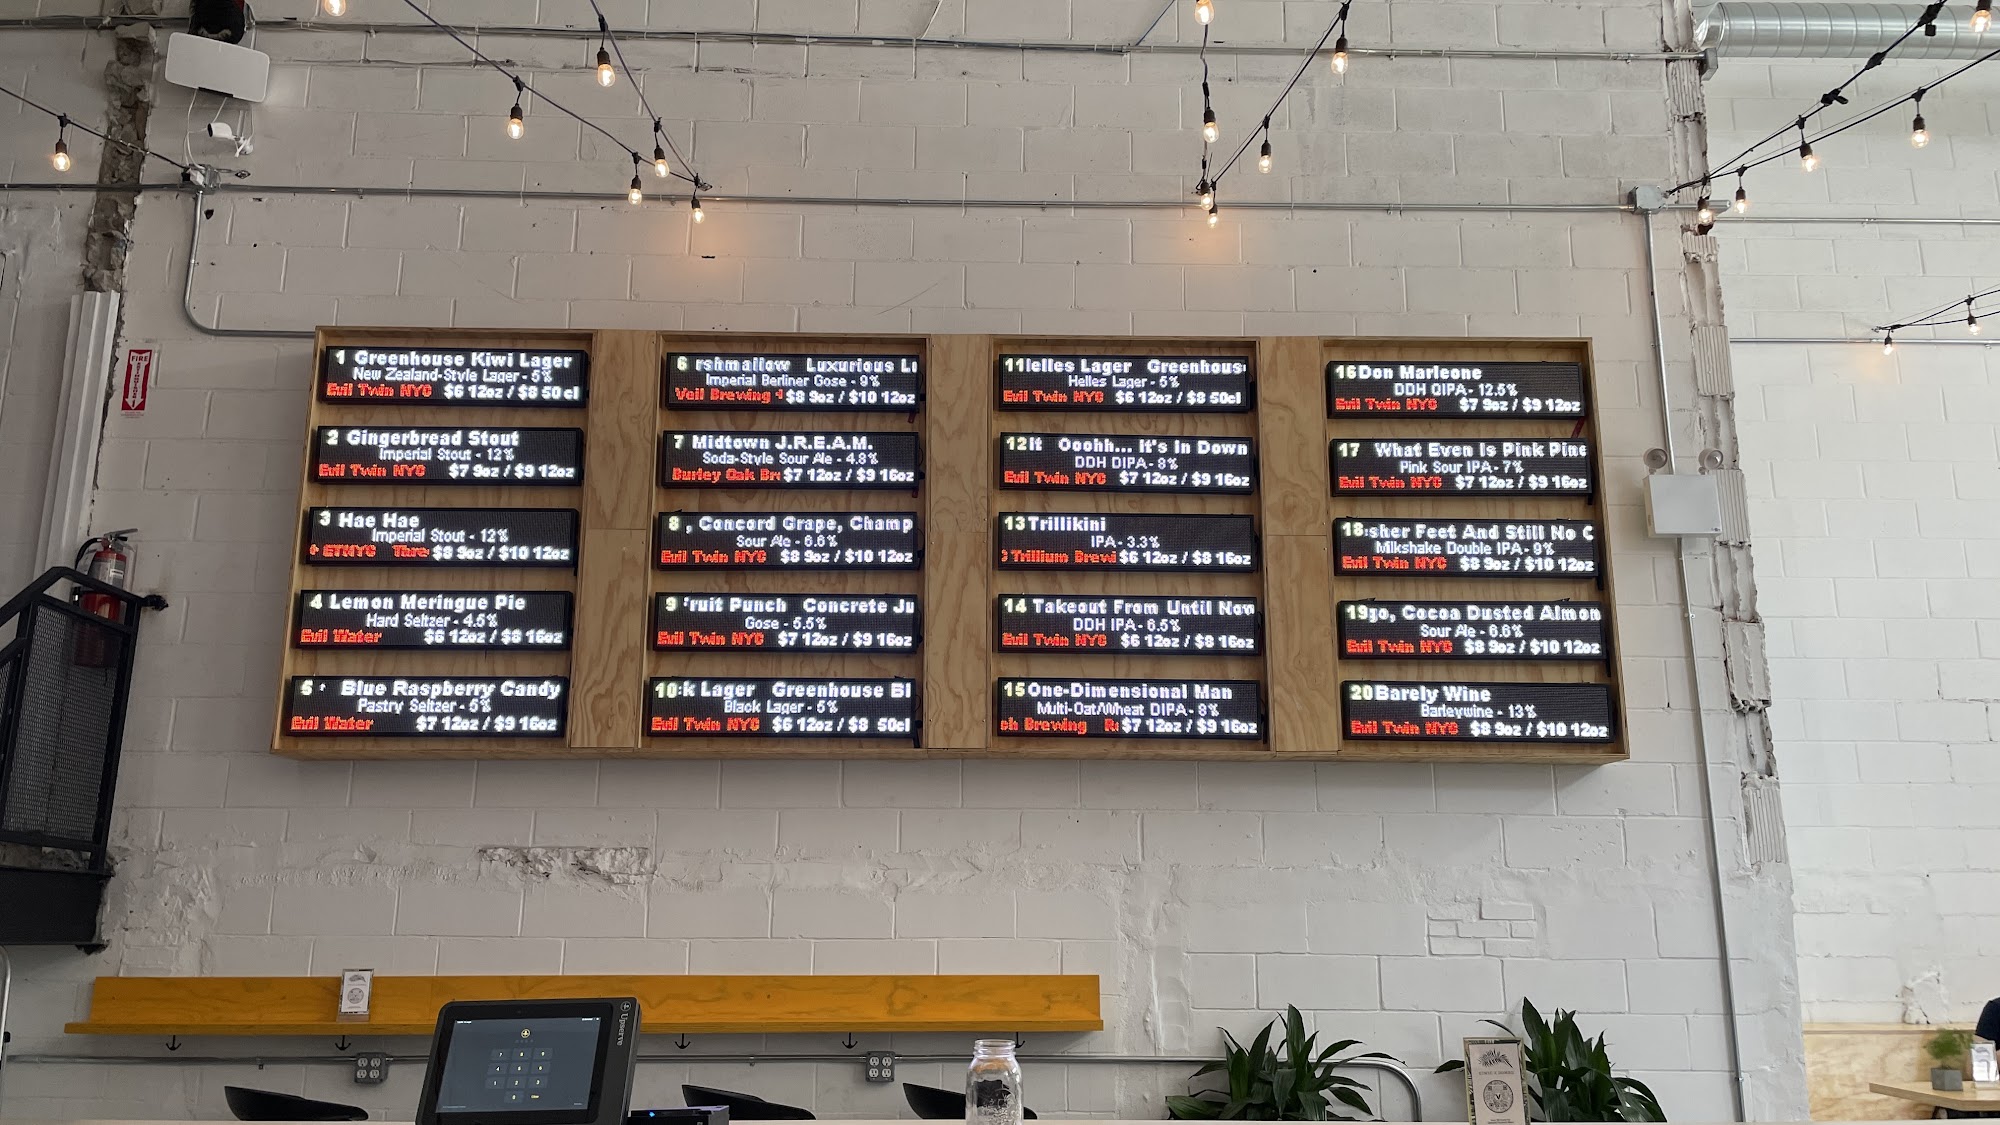 1 Greenhouse Kiwi Lager
New Zealand-Style Lager - 5%
Evil Twin NYC $6 12oz / $8 50cl
2 Gingerbread Stout
Imperial Stout - 12%
Evil Twin NYC $7 9oz / $9 12oz
3 Hae Hae
Imperial Stout - 12%
ETNYC Thre $8 9oz / $10 12oz
4 Lemon Meringue Pie
Hard Seltzer - 4.5%
Evil Water $6 12oz / $8 16oz
5 Blue Raspberry Candy
Pastry Seltzer - 5%
Evil Water $7 12oz / $9 16oz
6 rshmallow Luxurious L
Imperial Berliner Gose - 9%
Veil Brewing $8 9oz / $10 12oz
7 Midtown J.R.E.A.M.
Soda-Style Sour Ale - 4.8%
Burley Oak Br $7 12oz / $9 16oz
8 , Concord Grape, Champ
Sour Ale - 6.6%
Evil Twin NYC $8 9oz / $10 12oz
9 ruit Punch Concrete Ju
Gose - 5.5%
Evil Twin NYC $7 12oz / $9 16oz
10 k Lager Greenhouse Bl
Black Lager - 5%
Evil Twin NYC $6 12oz / $8 50cl
11 elles Lager Greenhous
Helles Lager - 5%
Evil Twin NYC $6 12oz / $8 50cl
12 It Ooohh... It's In Down
DDH DIPA - 8%
Evil Twin NYC $7 12oz / $9 16oz
13 Trillikini
IPA - 3.3%
Trillium Brewi $6 12oz / $8 16oz
14 Takeout From Until Now
DDH IPA - 6.5%
Evil Twin NYC $6 12oz / $8 16oz
15 One-Dimensional Man
Multi-Oat/Wheat DIPA - 8%
ch Brewing $7 12oz / $9 16oz
16 Don Marleone
DDH QIPA - 12.5%
Evil Twin NYC $7 9oz / $9 12oz
17 What Even Is Pink Pine
Pink Sour IPA - 7%
Evil Twin NYC $7 12oz / $9 16oz
18 sher Feet And Still No C
Milkshake Double IPA - 9%
Evil Twin NYC $8 9oz / $10 12oz
19 go, Cocoa Dusted Almon
Sour Ale - 6.6%
Evil Twin NYC $8 9oz / $10 12oz
20 Barely Wine
Barleywine - 13%
Evil Twin NYC $8 9oz / $10 12oz
FIRE
Upserve